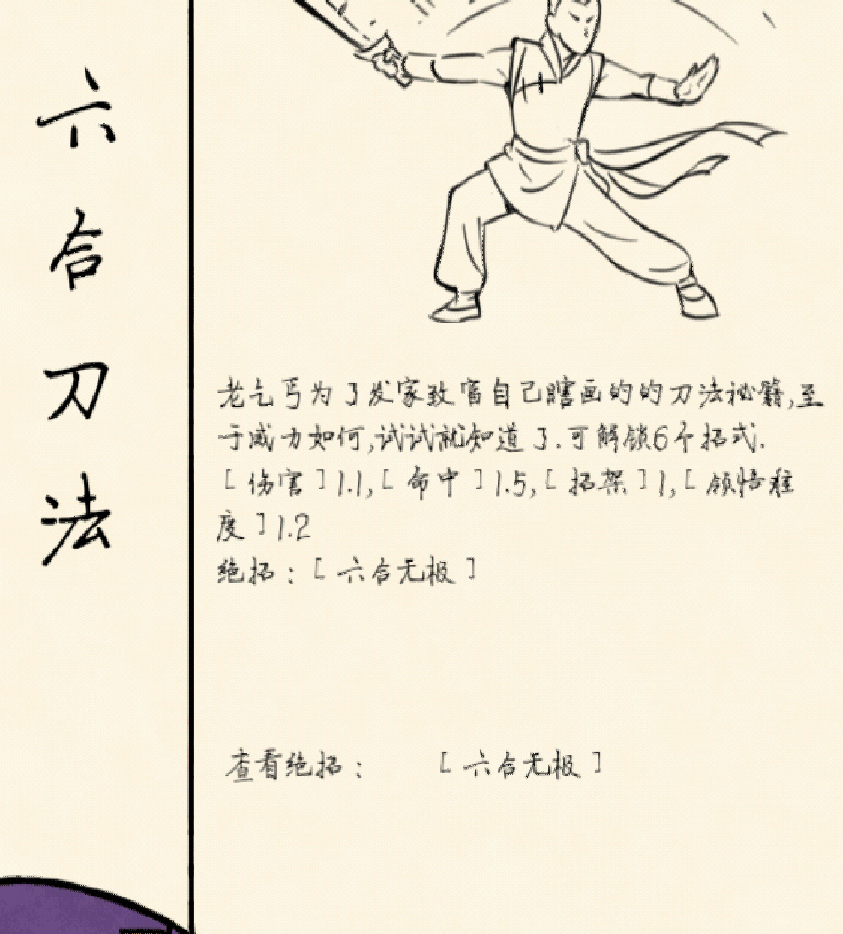 六合刀法
老乞丐为了发家致富自己瞎画的的刀法秘籍,至
于威力如何,试试就知道了.可解锁6个招式.
[伤害]1.1,[命中]1.5,[招架]1,[领悟难
度]1.2
绝招:[六合无极]
查看绝招: [六合无极]